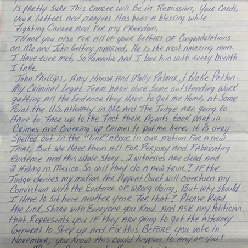 is pretty sure this cancer will be in Remission, Your Cards,
Your Letters and prayers Has been a Blessing while
Fighting Cancer and For my Freedom.
Thank you also For all of your Letters of Congratulations
on Me and John Getting married. He is the most amazing man
I have ever met, So Romantic and I love him with every breath
I take.
John Phillips, Amy Hanna and Molly Palmer, & Blake Patton
My Criminal Legal Team have done Some outstanding work
getting all the Evidence they have to get me Home at Some
Point the US attorney in OK and The Judge are going to
Have to Face up to the Fact their Agents took part in
Crimes and covering up Crimes to Blame others. It is very
Spelled out in the Book in our motion For a new
Trial. But we Have them all For Perjury and Fabricating
Evidence and this whole Story. 2 witnesses are dead and
is Hiding in Mexico So will they do a new trial? if the
Judge denies my motion the Highest Court will overturn my
Conviction with the Evidence of wrong doing, But why should
I Have to Sit here another year For that? Please Read
the Link, Share with Everyone you Know. and ask any politician
that Represents you if they are going to get the Attorney
General to Step up and Fix this Before you vote in
November, you Know this could Happen to any of you!